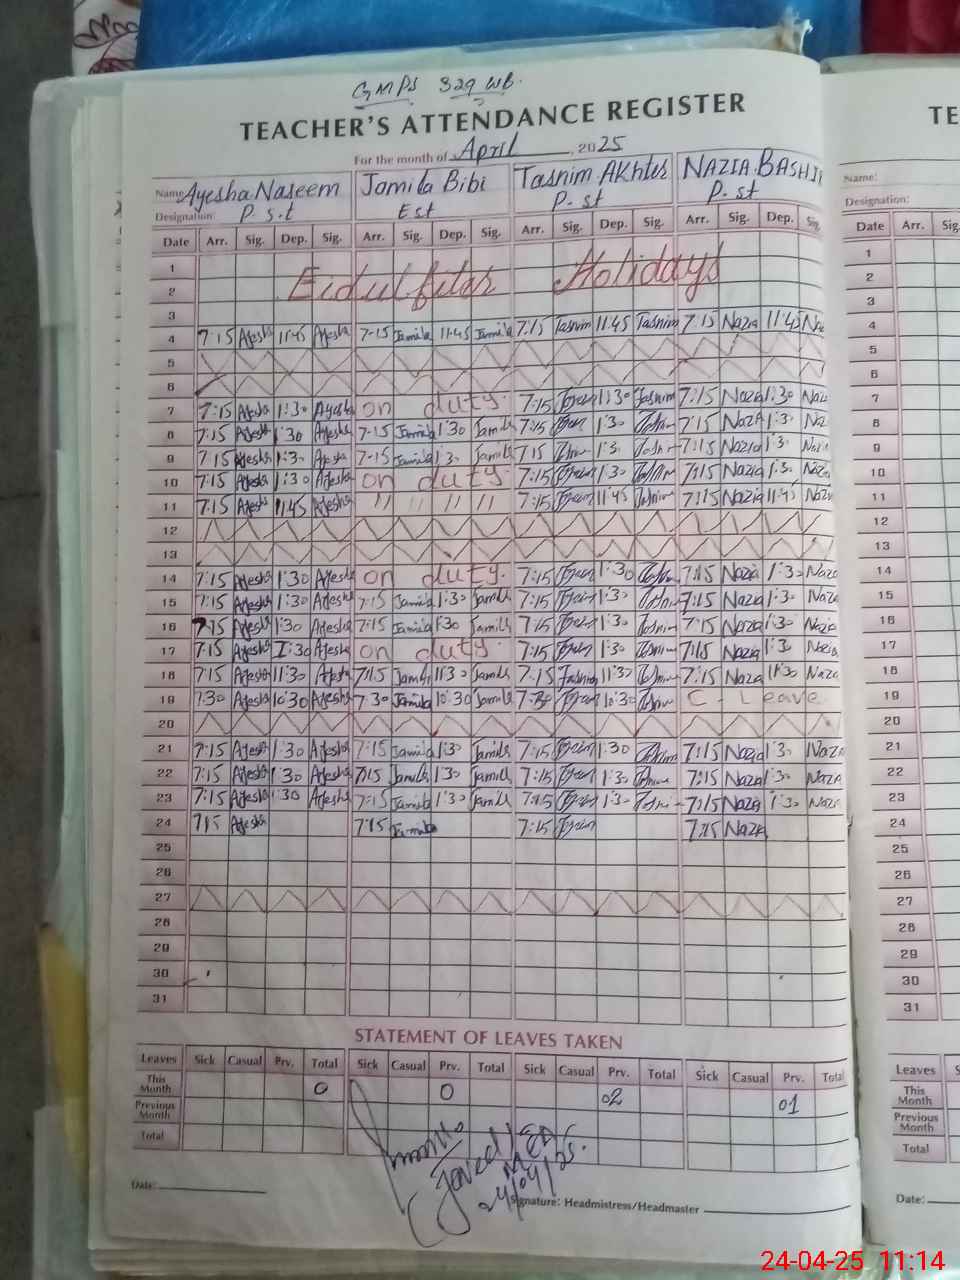 GMPS 329 WB.
TEACHER'S ATTENDANCE REGISTER
For the month of April, 2025
Name Ayesha Naseem Jamila Bibi Tasnim AKhter NAZIA BASHIR
Designation: P s.t Est P-st P-st
Date Arr. Sig. Dep. Sig. Arr. Sig. Dep. Sig. Arr. Sig. Dep. Sig. Arr. Sig. Dep. Sig.
1
2 Eidulfiter Holidays
3
4 7:15 Ayesha 11:45 Ayesha 7-15 Jamila 11:45 Jamila 7:15 Tasnim 11:45 Tasnim 7:15 Nazia 11:45 Naz
5
6
7 7:15 Ayesha 1:30 Ayesha on duty. 7:15 1:30 Tasnim 7:15 Nazia 1:30 Naz
8 7:15 Ayesha 1:30 Ayesha 7-15 Jamila 1:30 Jamila 7:15 1:30 7:15 Nazia 1:30 Naz
9 7:15 Ayesha 1:30 Ayesha 7-15 Jamila 1:30 Jamila 7:15 1:30 7:15 Nazia 1:30 Naz
10 7:15 Ayesha 1:30 Ayesha on duty. 7:15 1:30 7:15 Nazia 1:30 Naz
11 7:15 Ayesha 11:45 Ayesha 〃 〃 〃 〃 7:15 11:45 Tasnim 7:15 Nazia 11:45 Naz
12
13
14 7:15 Ayesha 1:30 Ayesha on duty. 7:15 1:30 7:15 Nazia 1:30 Naz
15 7:15 Ayesha 1:30 Ayesha 7:15 Jamila 1:30 Jamila 7:15 1:30 7:15 Nazia 1:30 Naz
16 7:15 Ayesha 1:30 Ayesha 7:15 Jamila 1:30 Jamila 7:15 1:30 7:15 Nazia 1:30 Nazia
17 7:15 Ayesha 1:30 Ayesha on duty. 7:15 1:30 7:15 Nazia 1:30 Nazia
18 7:15 Ayesha 11:30 Ayesha 7:15 Jamila 11:30 Jamila 7:15 Tasnim 11:30 7:15 Nazia 11:30 Nazia
19 7:30 Ayesha 10:30 Ayesha 7:30 Jamila 10:30 Jamila 7:30 10:30 C - Leave
20
21 7:15 Ayesha 1:30 Ayesha 7:15 Jamila 1:30 Jamila 7:15 1:30 7:15 Nazia 1:30 Nazia
22 7:15 Ayesha 1:30 Ayesha 7:15 Jamila 1:30 Jamila 7:15 1:30 7:15 Nazia 1:30 Nazia
23 7:15 Ayesha 1:30 Ayesha 7:15 Jamila 1:30 Jamila 7:15 1:30 7:15 Nazia 1:30 Nazia
24 7:15 Ayesha 7:15 Jamila 7:15 7:15 Nazia
25
26
27
28
29
30
31
STATEMENT OF LEAVES TAKEN
Leaves Sick Casual Prv. Total Sick Casual Prv. Total Sick Casual Prv. Total Sick Casual Prv. Total
This Month 0 0 02 01
Previous Month
Total
24/04/25.
Date:
Signature: Headmistress/Headmaster
TE
Name:
Designation:
Date Arr. Sig.
1
2
3
4
5
6
7
8
9
10
11
12
13
14
15
16
17
18
19
20
21
22
23
24
25
26
27
28
29
30
31
Leaves S
This Month
Previous Month
Total
Date:
24-04-25 11:14